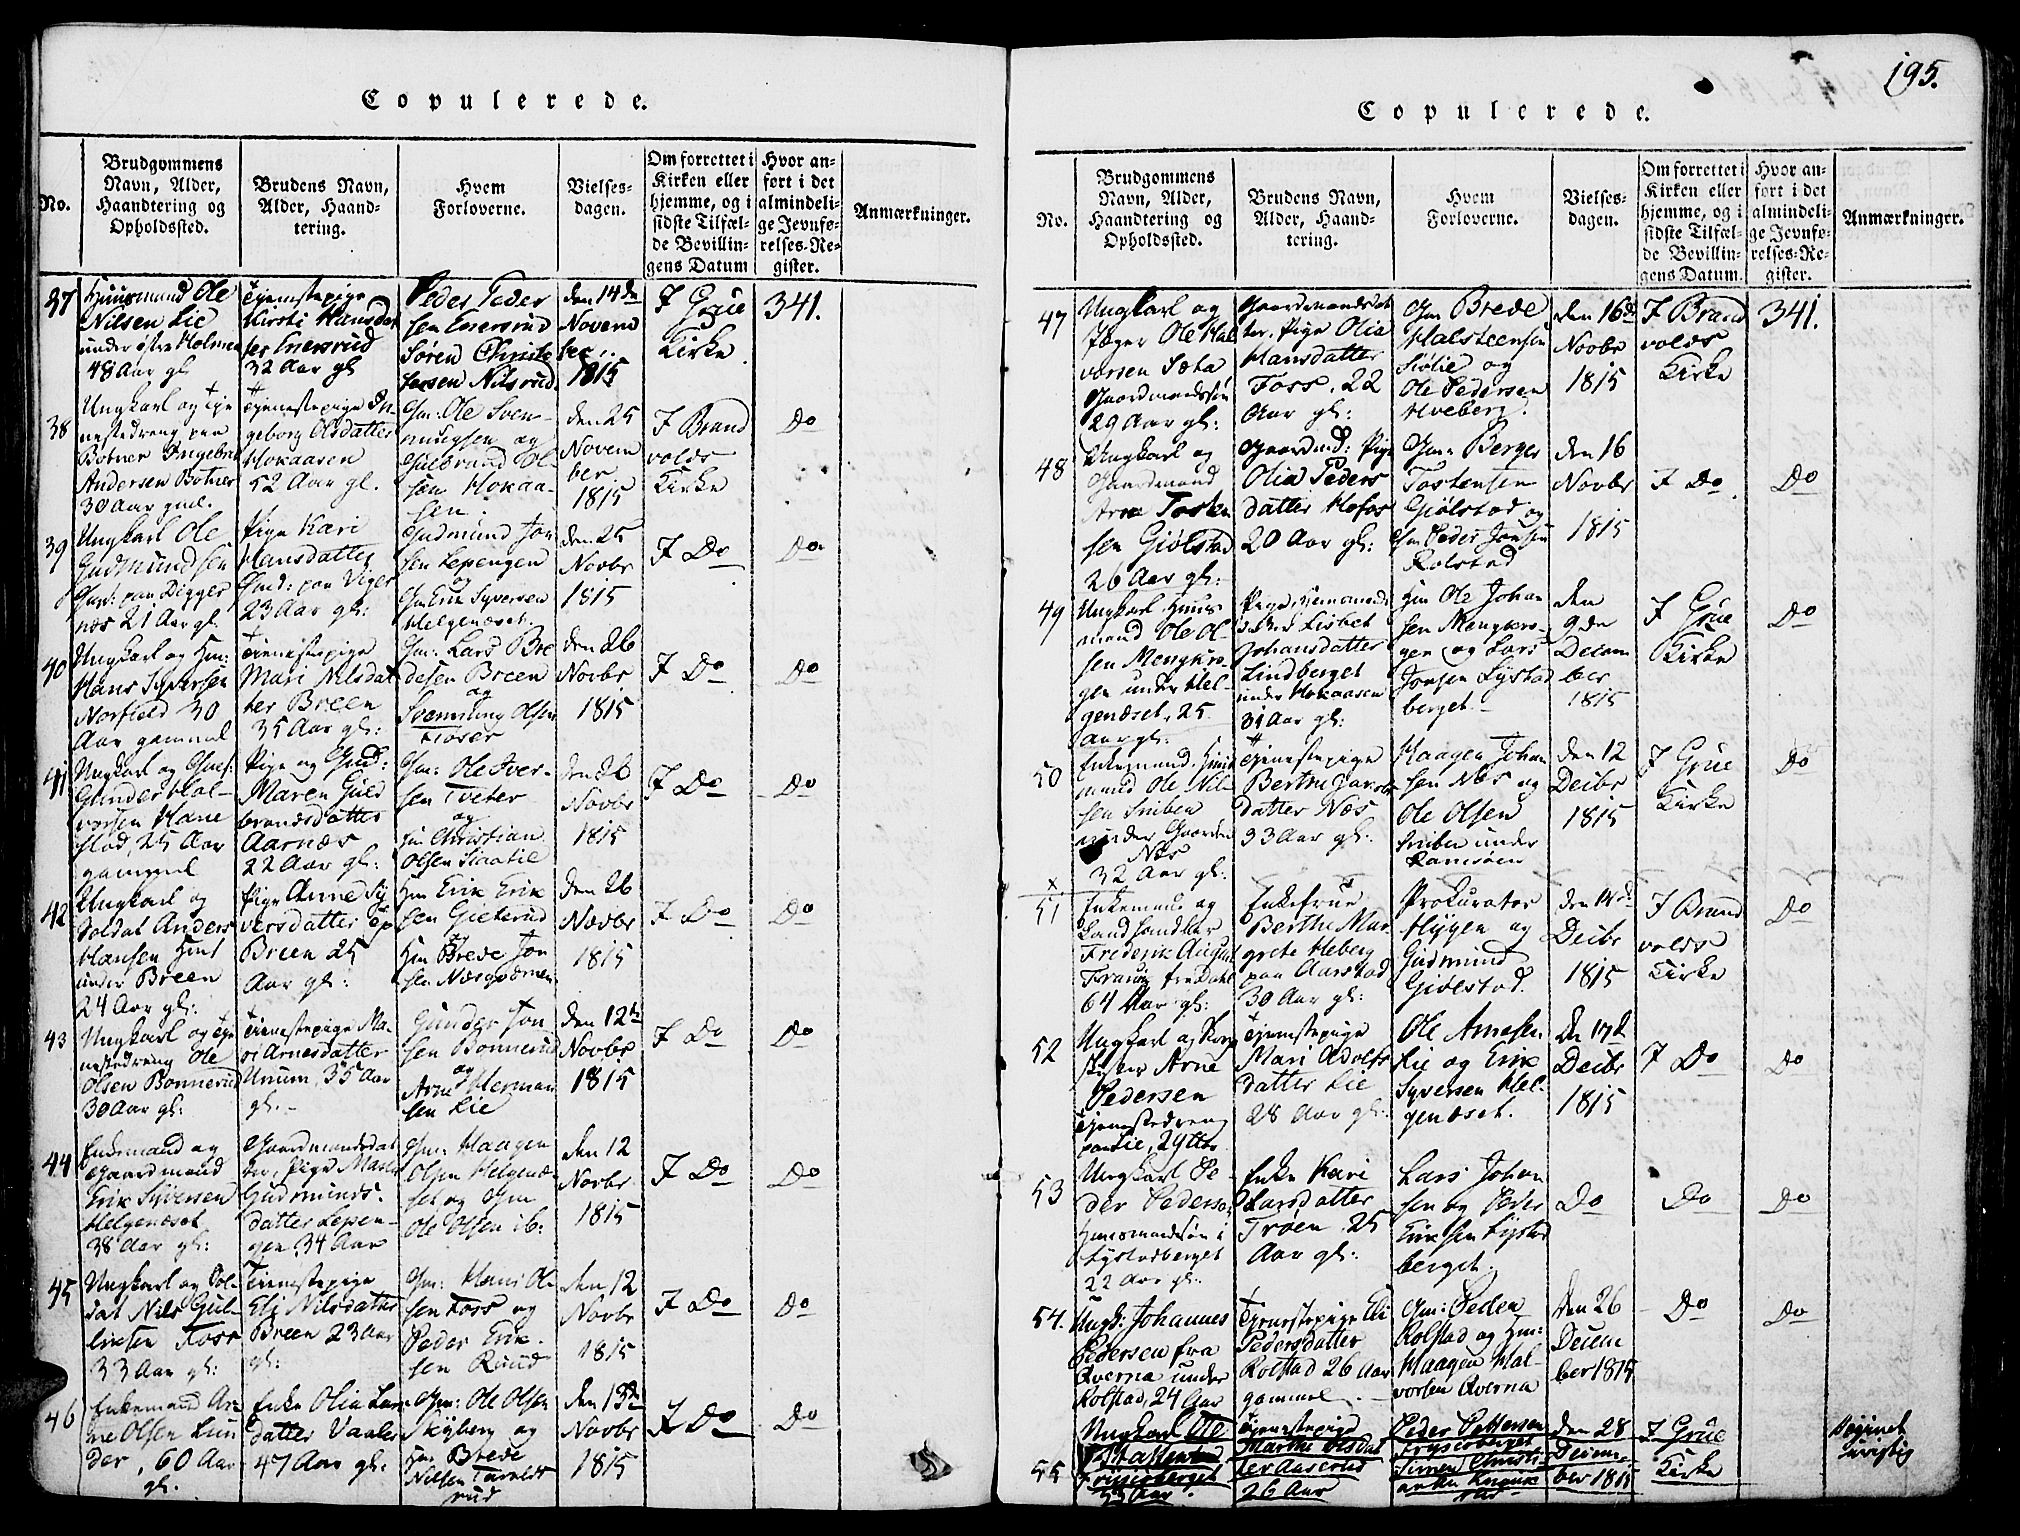 Copulerede.
No.
Brudgommens Navn, Alder, Haandtering og Opholdssted.
Brudens Navn, Alder, Haandtering.
Hvem Forloverne.
Vielsesdagen.
Om forrettet i Kirken eller hjemme, og i sidste Tilfælde Bevillingens Datum
Hvor anført i det almindelige Jevnførelses-Register.
Anmærkninger.
37
Huusmand Ole
Nilsen Lie
under østre Holmen
48 Aar gl
Tjenestepige
Kirsti Hansdat
ter Enersrud
32 Aar gl
Peder Peder
sen Enersrud
Søren Christo
fersen Nilsrud
den 14de
Novem
ber
1815
I Grue
Kirke
341.
38
Ungkarl og Tje
nestedreng paa
Botner Ingebret
Andersen Botner
30 Aar gml.
Tjenestepige In-
geborg Olsdatter
Hokaasen
52 Aar gl.
Gm: Ole Svenn-
ningsen og
Gulbrand Ol-
sen Hokaa-
sen.
den 25
Novem
ber
1815
I Brand
volds
Kirke
Do
39
Ungkarl Ole
Gudmundsen
paa Digger
næs 21 Aar gl.
Pige Kari
Hansdatter
Gmd: paa Viger
23 Aar gl:
Gudmund Jon
sen Lepengen
og
Gm Erik Syversen
Helgenæset.
den 25
Novbr
1815
I Do
Do
40
Ungkarl og Hm:
Hans Syversen
Norfield 30
Aar gammel
Tjenestepige
Mari Nilsdat
ter Breen
35 Aar gl:
Gm: Lars Bre
desen Breen
og
Svenning Olsen
den 26
Novbr
1815
I Do
Do
41
Ungkarl og
Gunder Hal-
vorsen Hane
stad, 25 Aar
gammel
Pige og Gmd:
Maren Guld
brandsdatter
Aarnæs
22 Aar gl:
Gm: Ole Iver-
sen Tveter
og
Hm Christian
Olsen
den 26
Novbr
1815
I Do
Do
42
Ungkarl og
Soldat Anders
Hansen Hmt
under Breen
24 Aar gl:
Pige Anne Sy
versdatter
Breen 25
Aar gl:
Hm Erik Erik
sen Gieterud
og
Hm Brede Jon
sen
den 26
Novbr
1815
I Do
Do
43
Ungkarl og Tje
nestedreng Ole
Olsen Bonnerud
30 Aar gl:
Tjenestepige Ma-
ri Arnesdatter
Unum, 35 Aar
gl.-
Gunder Jon
sen Bonnerud
og
Arne Herman
sen Lie
den 12te
Novbr
1815
I Do
Do
44
Enkemand og
Gaardmand
Erik Syversen
Helgenæset
38 Aar gl:
Gaardmandsdat
ter, Pige Maren
Gudmunds-
datter Lepen-
gen 34 Aar
Gm: Haagen
Olsen Helgenæ-
set og Gm
Ole Olsen ib:
den 12
Novbr
1815
I Do
Do
45
Ungkarl og Sol-
dat Nils Gul-
liksen Foss
33 Aar gl:
Tjenestepige
Eli Nilsdatter
Breen 23 Aar
gl:
Gm: Hans Ol-
sen Foss og
Peder Erik-
sen Ruud
den 12
Novbr
1815
I Do
Do
46
Enkemand Ar-
ne Olsen Lun
der, 60 Aar
gl.
Enke Olia Lars
datter Vaaler
47 Aar gl:
Gm: Ole Olsen
Skyberg og
Hm Brede
Nilsen Taralds
rud
den 13de
Novbr
1815
I Do
Do
195.
Copulerede.
No.
Brudgommens Navn, Alder, Haandtering og Opholdssted.
Brudens Navn, Alder, Haandtering.
Hvem Forloverne.
Vielsesdagen.
Om forrettet i Kirken eller hjemme, og i sidste Tilfælde Bevillingens Datum.
Hvor anført i det almindelige Jevnførelses-Register.
Anmærkninger.
47
Ungkarl og
Jæger Ole Hal
vorsen Sæta
Gaardmandssøn
29 Aar gl:
Gaardmandsdat
ter, Pige Olia
Hansdatter
Foss, 22
Aar gl:
Gm Brede
Halsteensen
Siølie og
Ole Pedersen
Hveberg.
den 16de
Novbr
1815
I Brand
volds
Kirke
341.
48
Ungkarl og
Gaardmand
Arne Tosten
sen Giølstad
26 Aar gl:
Gaardmd: Pige
Olia Peders
datter Hofos
20 Aar gl:
Gm: Berger
Tostensen
Giølstad og
Gm Peder Jonsen
Rolstad
den 16
Novbr
1815
I Do
Do
49
Ungkarl Huus
mand Ole Ol-
sen Mengkro-
gen under Hel-
genæset, 25
Aar gl:
Pige
Lisbet
Johansdatter
Lindberget
under Hokaasen
31 Aar gl:
Hm Ole Johan
sen Mengkro-
gen og Lars
Jonsen Lystad
berget.-
den
9de
Decem
ber
1815
I Grue
Kirke
Do
50
Enkemand, Huus
mand Ole Nil-
sen Sniben
under Gaarden
Næs
32 Aar gl:
Tjenestepige
Berthe Jacobs
datter Næs
33 Aar gl:
Haagen Johan
sen Næs og
Ole Olsen
Sniben under
Ramsøen
den 12
Decbr
1815
I Grue
Kirke
Do
51
Enkemand og
Landhandler
Frederik August
64 Aar gl:
Enkefrue
Berthe Mar
grete Heberg
paa Aarstad
30 Aar gl:
Prokurator
Hygen og
Gudmund
Giølstad.
den 14de
Decbr
1815
I Brand
volds
Kirke
Do
52
Ungkarl og
Arne
Pedersen
Tjenestedreng
paa Lie, 29 Aar
Tjenestepige
Mari Adolfs
datter Lie
28 Aar gl:
Ole Arnesen
Lie og Erik
Syversen Hel-
genæset.
Den 17de
Decbr
1815
I Do
Do
53
Ungkarl Pe-
der Pedersen
Huusmandssøn i
Lystadberget
22 Aar gl:
Enke Kari
Larsdatter
Trøen, 25
Aar gl:
Lars Johan
sen og Peder
Eriksen Lystad
berget.
Do
Do
Do
54.
Ungk: Johannes
Pedersen fra
Qverna under
Rolstad, 24 Aar
Tjenestepige Eli
Pedersdatter
Rolstad 26 Aar
gammel.
Gm: Peder
Rolstad og Hm:
Haagen Hal-
vorsen Qverna
den 26
Decem
ber 1815
Do
Do
55
Ungkarl Ole
Frysjøberget
Tjenestepige
Marthe Olsdat
ter Aaserud
26 Aar
Peder Pettersen
Frysjøberget
Simen Christi-
den 28
Decem-
ber 1815
I Grue
Kirke